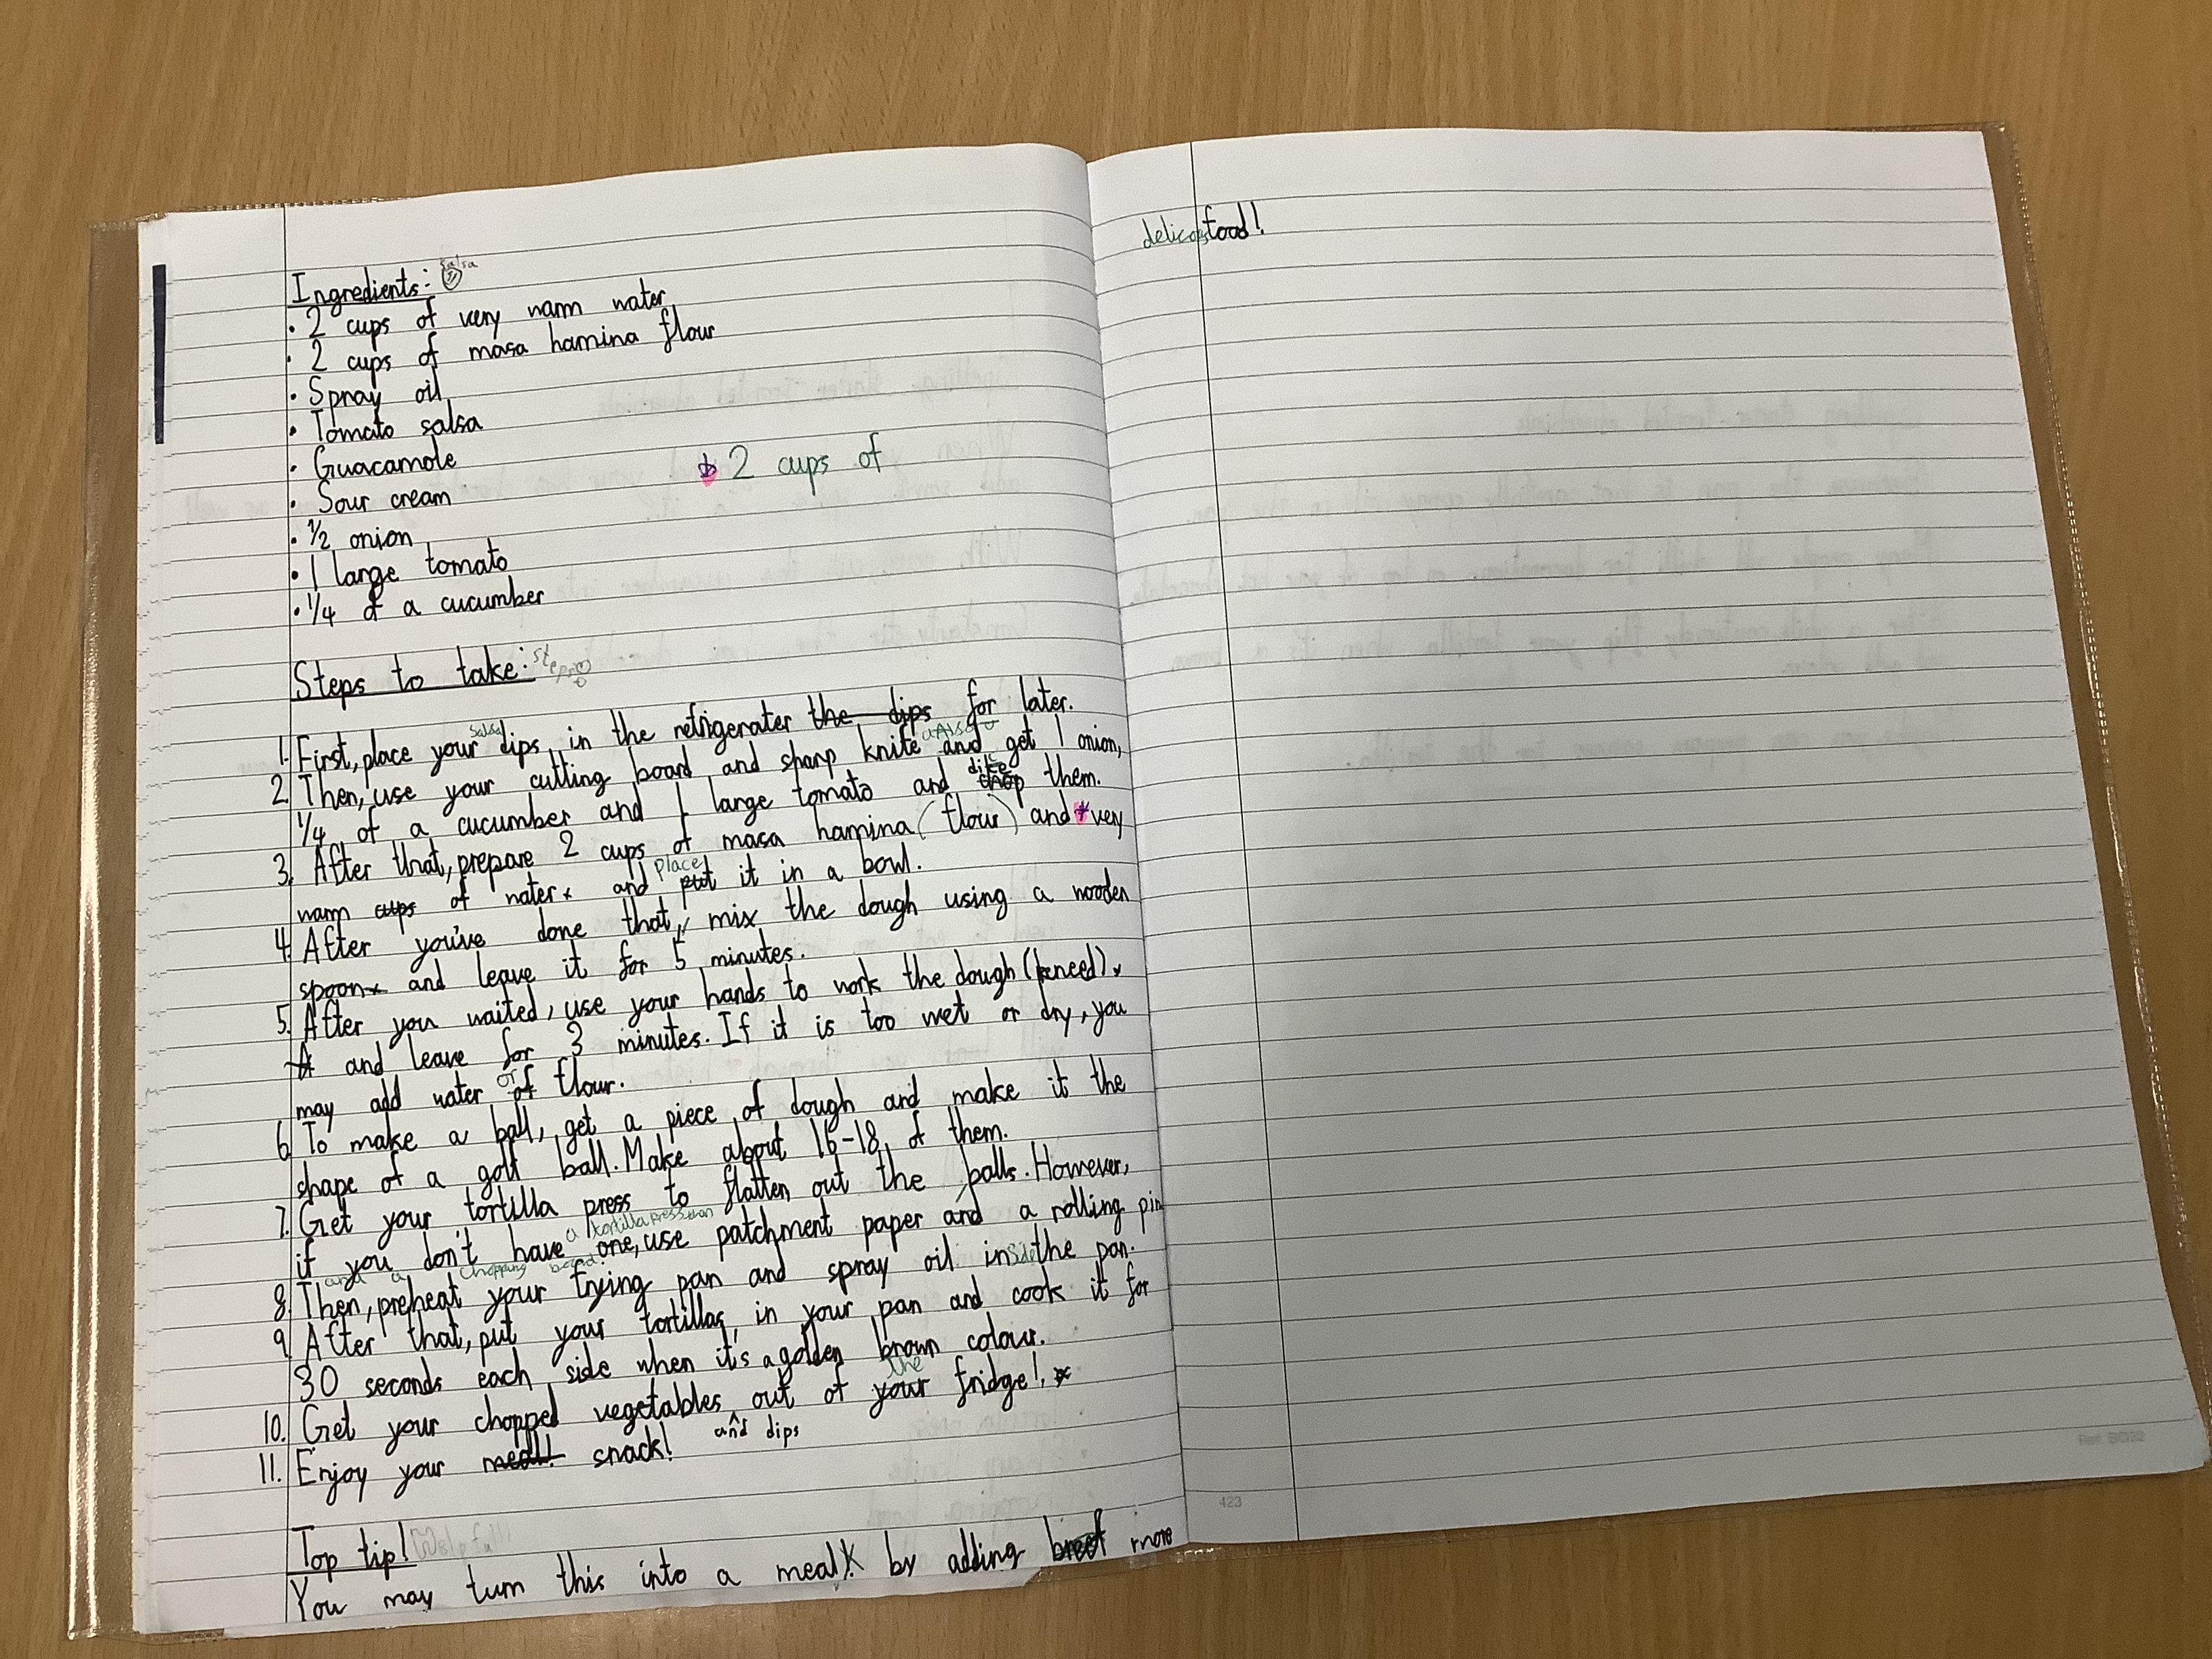 Ingredients: salsa
• 2 cups of very warm water
• 2 cups of masa hamina flour
• Spray oil
• Tomato salsa
• Guacamole
2 cups of
• Sour cream
• 1/2 onion
• 1 large tomato
• 1/4 of a cucumber
Steps to take: steps
salsa
1. First, place your dips in the refrigerater the dips for later.
2. Then, use your cutting board and sharp knife and get 1 onion,
dice
1/4 of a cucumber and 1 large tomato and chop them.
3. After that, prepare 2 cups of masa hamina (flour) and * very
place
warm cups of water and put it in a bowl.
4. After you've done that, mix the dough using a wooden
spoon and leave it for 5 minutes.
5. After you waited, use your hands to work the dough (kneed)
A and leave for 3 minutes. If it is too wet or dry, you
or
may add water of flour.
6. To make a ball, get a piece of dough and make it the
shape of a golf ball. Make about 16-18 of them.
7. Get your tortilla press to flatten out the balls. However,
a tortilla press
if you don't have one, use patchment paper and a rolling pin
and a chopping board.
8. Then, preheat your frying pan and spray oil inside the pan.
9. After that, put your tortillas in your pan and cook it for
30 seconds each side when it's a golden brown colour.
the
10. Get your chopped vegetables out of your fridge!
and dips
11. Enjoy your meal! snack!
Top tip!
You may turn this into a meal by adding more
food!
423